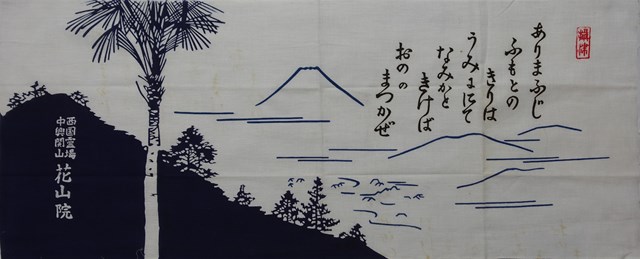 ありまふじ
ふもとの
きりは
うみににて
なみかと
きけば
おのの
まつかぜ
西国霊場
中興開山
花山院